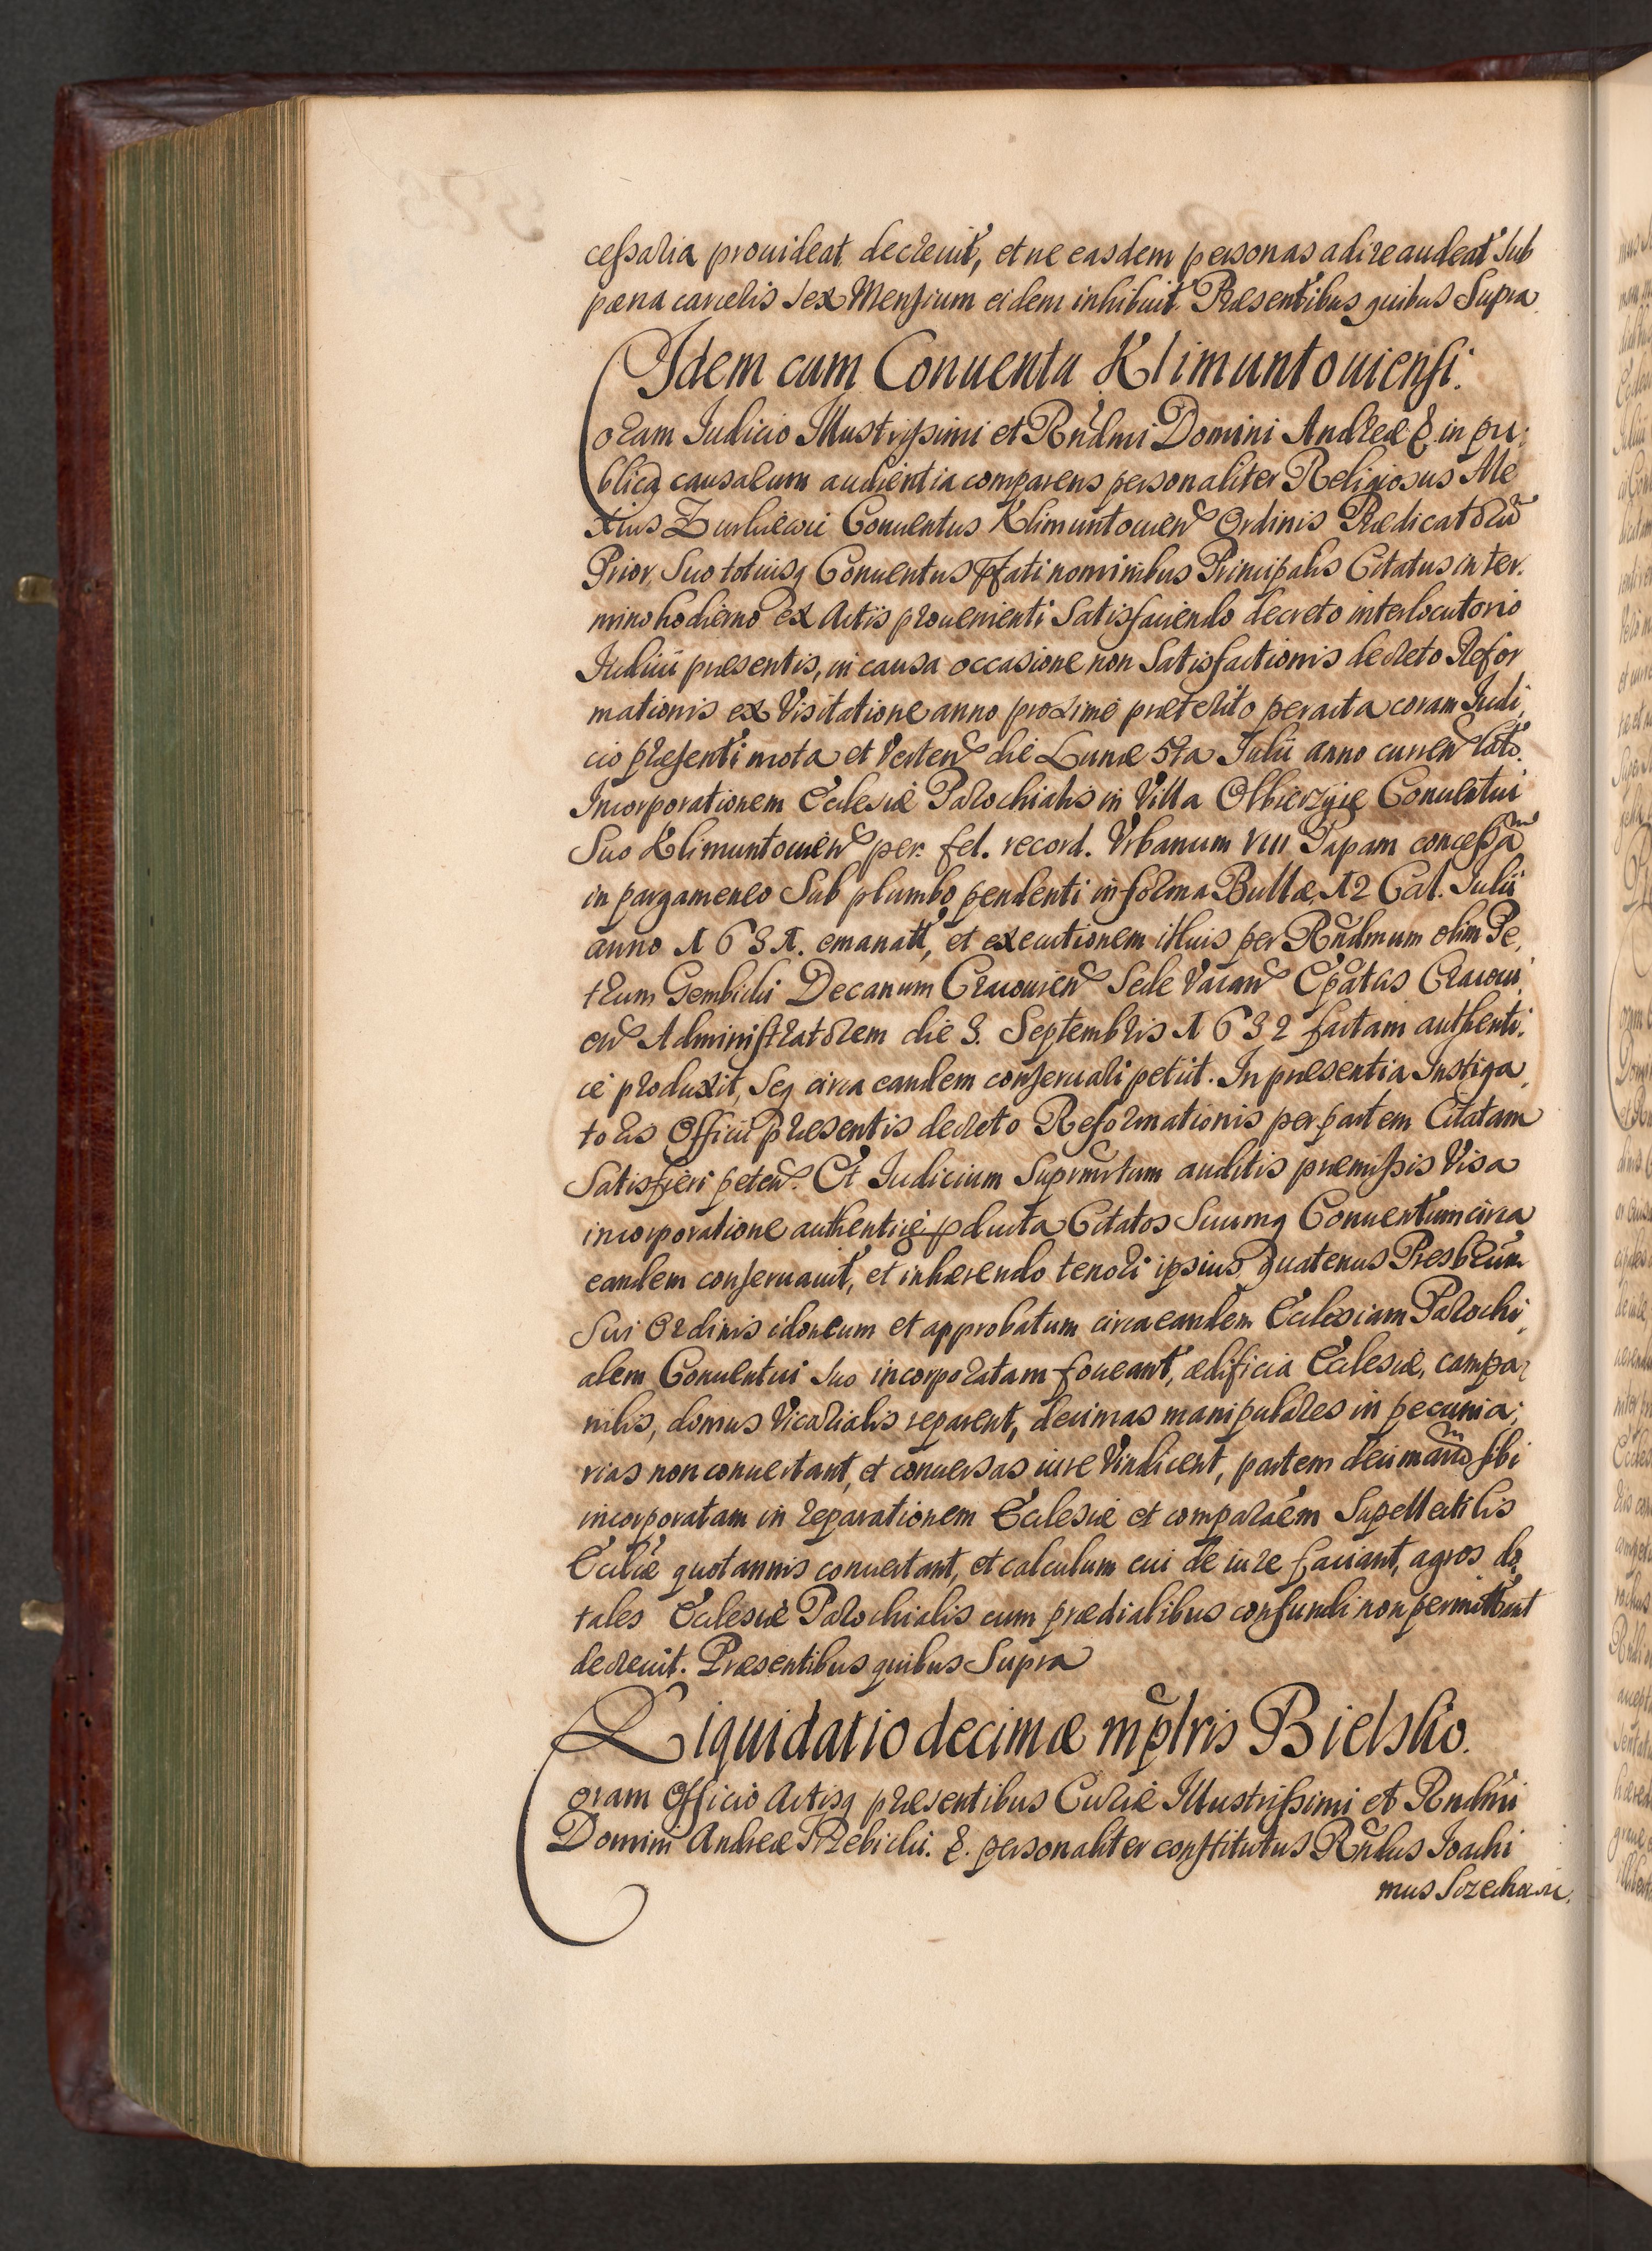 cessaria prouideat decreuit, et ne easdem personas adire audeat sub
pæna carceris sex Mensium eidem inhibuit. Præsentibus quibus Supra.
Idem cum Conuentu Klimuntouiensi.
Coram Iudicio Illustrissimi et Rndmi Domini Andreæ &. in pu-
blica causarum audientia comparens personaliter Religiosus Ale
xius Conuentus Klimuntouien Ordinis Prædicatorū
Prior, Suo totiusq Conuentus pfati nominibus Principalis Citatus in ter-
mino hodierno ex Actis prouenienti Satisfaciendo decreto interlocutorio
Iudicii præsentis, in causa occasione non Satisfactionis decreto Refor
mationis ex Visitatione anno proximè præterito peracta coram Iudi,
cio præsenti mota et Verten die Lunæ 5ta Iulii anno curren lato.
Incorporationem Ecclesiæ Parochialis in Villa Olbierzyce Conuentui
Suo Klimuntouien per fel. record. Vrbanum VIII Papam concessam
in pargameneo Sub plumbo pendenti in forma Bullæ, 12 Cal. Iulii
anno 1631. emanat, et executionem illius per Rndmum olim Pe,
trum Gembicki Decanum Cracouien Sede Vacan Epatus Cracoui,
en Administratorem die 3. Septembris 1632 factam authenti-
cè produxit, Seq circa eandem conseruari petiit. In præsentia Instiga,
toris Officii præsentis decreto Reformationis per partem Citatam
Satisfieri peten. Et Iudicium Suprmrtum auditis præmissis Visa
incorporatione authenticè pducta Citatos Suumq Conuentum circa
eandem conseruauit, et inhærendo tenori ipsius quatenus Presbrum
Sui Ordinis idoneum et approbatum circa eandem Ecclesiam Parochi,
alem Conuentui suo incorporatam foueant, ædificia Ecclesiæ, campa-
nilis, domus Vicarialis reparent, decimas manipulares in pecunia-
rias non conuertant, et conuersas iure Vindicent, partem decimarum sibi
incorporatam in reparationem Ecclesiæ et comparaem Supellectilis
Ecclæ quotannis conuertant, et calculum cui de iure faciant, agros do,
tales Ecclesiæ Parochialis cum prædialibus confundi non permittant
decreuit. Præsentibus quibus Supra
Liquidatio decimæ mplris Bielsko.
Coram Officio Actisq præsentibus Curiæ Illustrissimi et Rndmi
Domini Andreæ Trzebicki. &. personaliter constitutus Rndus Ioachi
mus